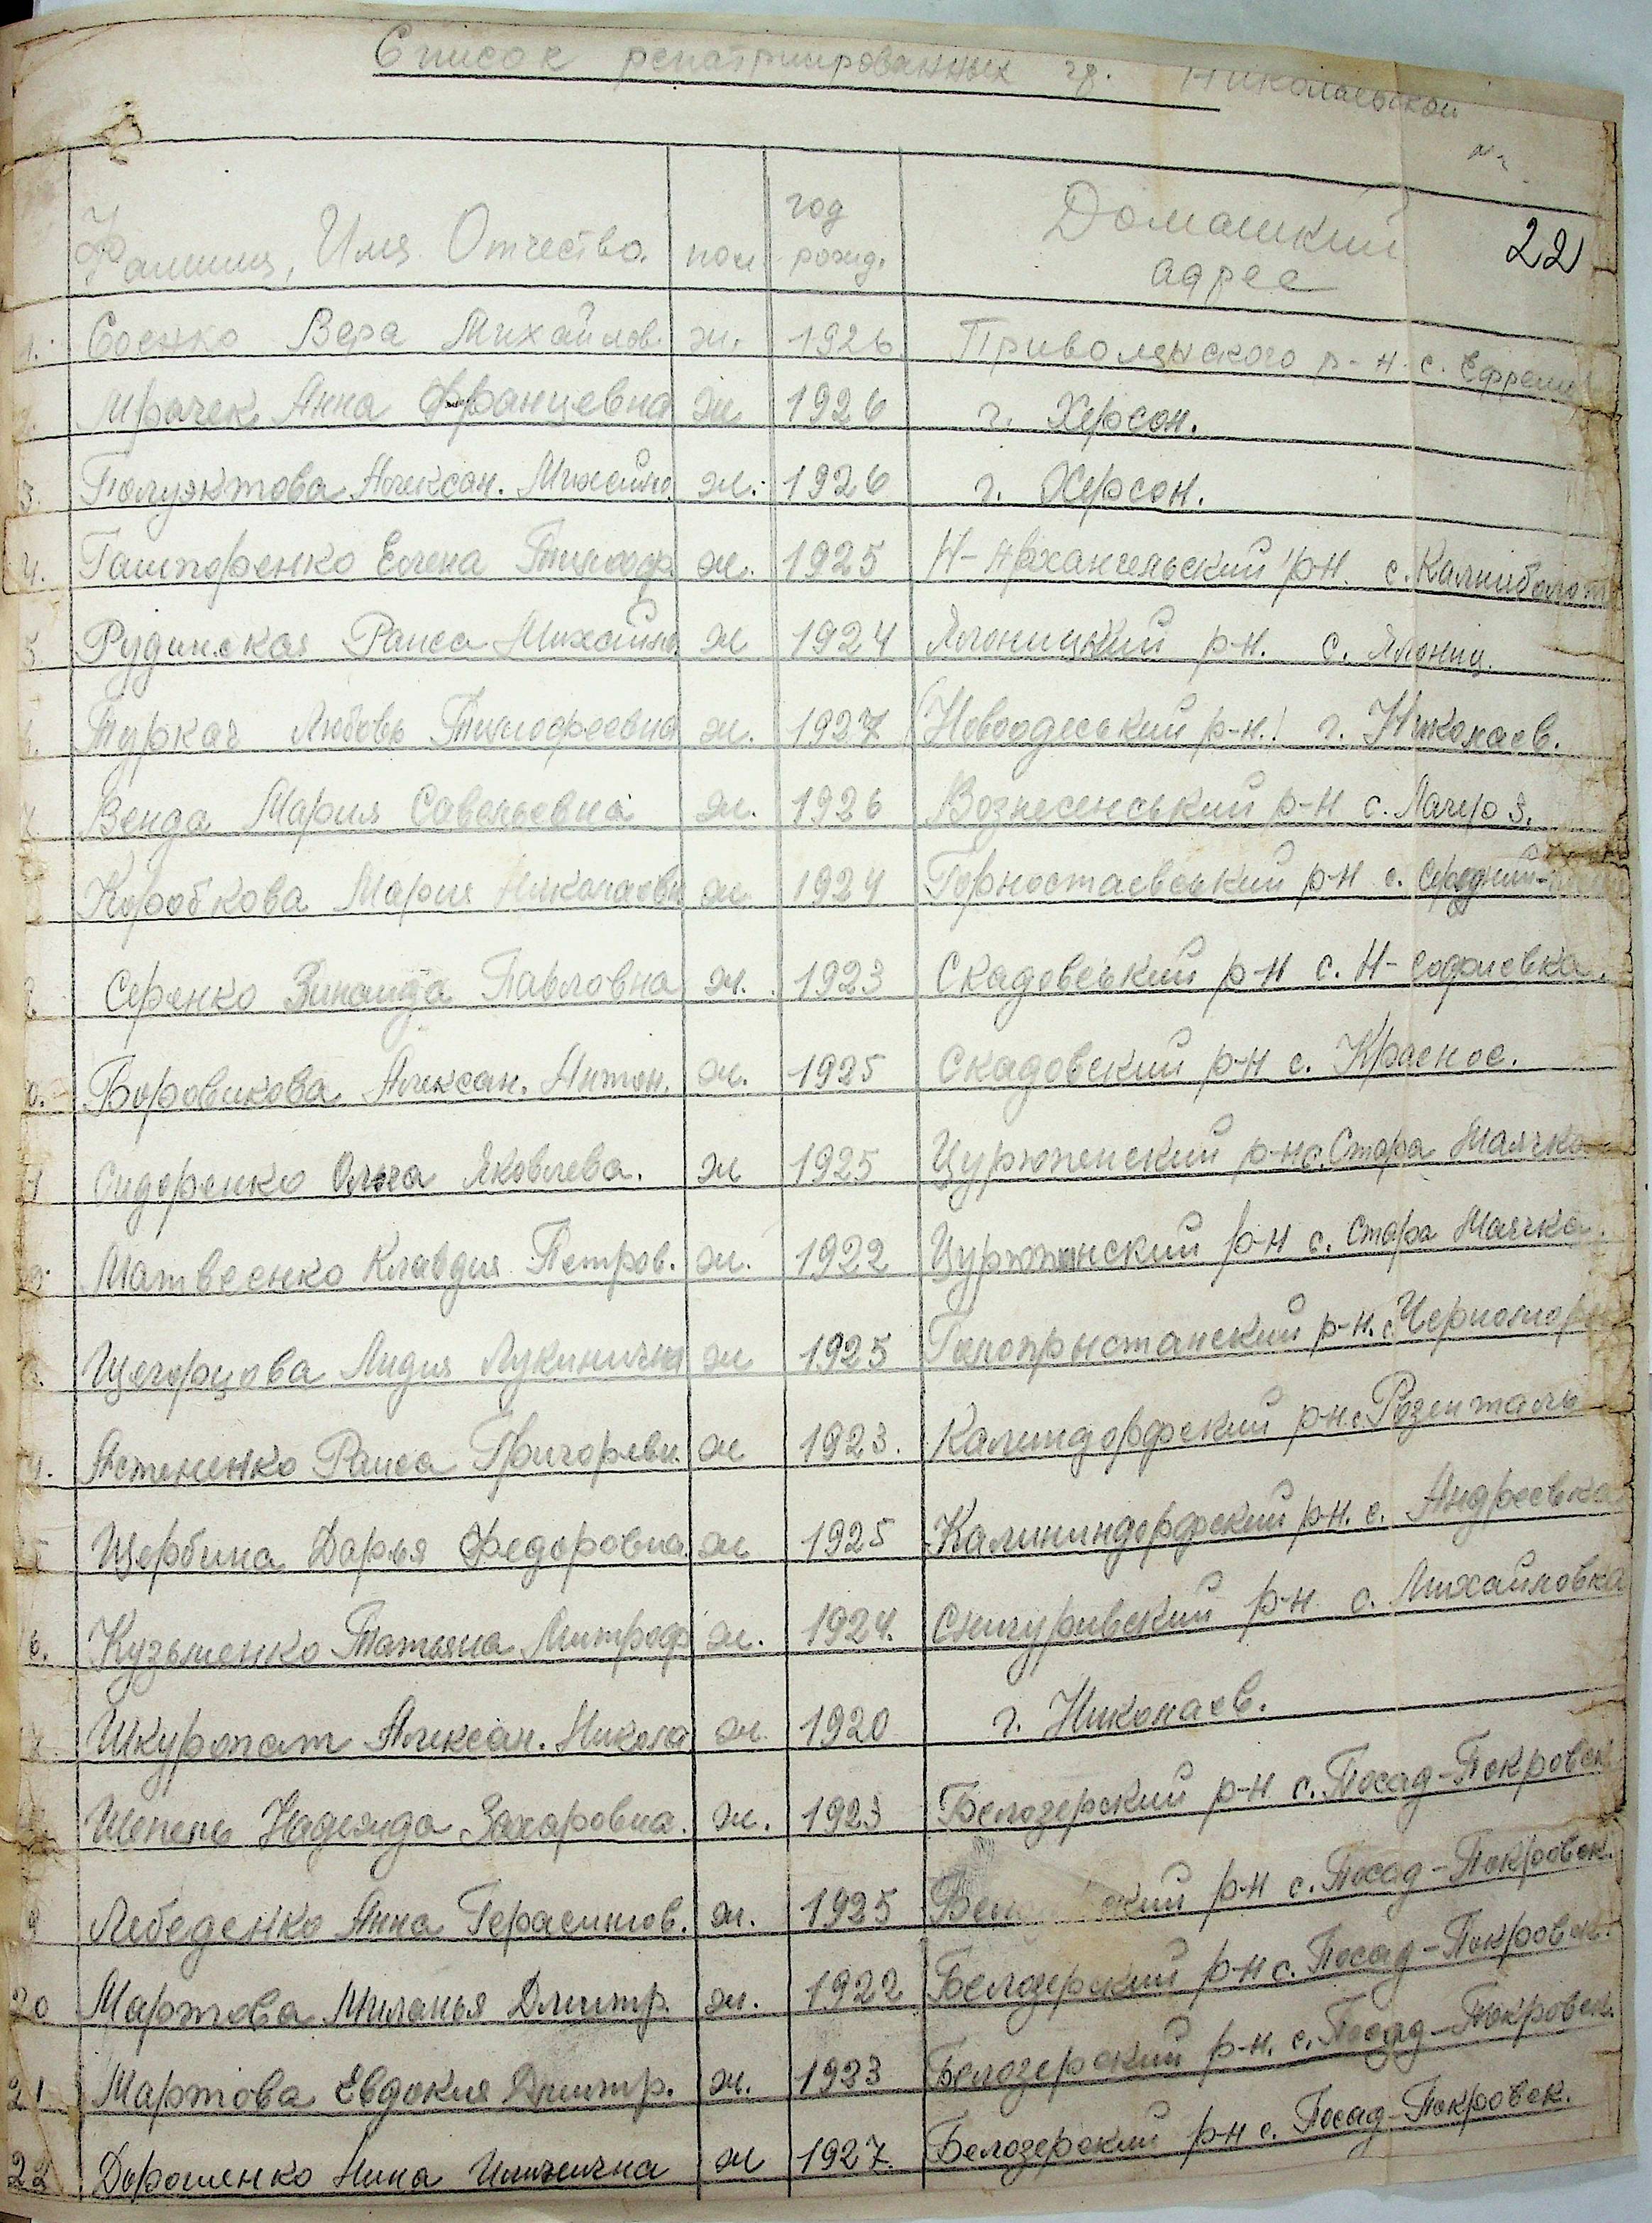 Список репатриированных гр. Николаевской
22
Фамилия, Имя Отчество. пол год рожд. Домашний адрес
1. Соенко Вера Михайлов. ж. 1926 Приволянского р-н. с.
Мрачек Анна Францевна ж 1926 г. Херсон.
3. Полуэктова Алексан. Михайло. ж. 1926 г. Херсон.
4. Гашпоренко Елена Тимооф. ж. 1925 Н-Архангельский р-н. с. Калниболот
5. Рудинская Раиса Михайло. ж 1924 р-н. с.
Туркач Любовь Тимофеевна ж. 1927 (Новоодеський р-н.) г. Николаев.
Венда Мария Савельевна ж. 1926 Вознесенський р-н с.
Коробкова Мария Николаевн ж 1924 Горностаевський р-н с.
Серенко Зинаида Павловна ж. 1923 Скадовський р-н с. Н-Софиевка.
Боровикова Алексан. Антон. ж. 1925 Скадовский р-н с. Красное.
Сидоренко Ольга Яковлева. ж 1925 Цурюпенский р-н с. Стара Маячка
Матвеенко Клавдия Петров. ж. 1922 Цурюпинский р-н с. Стара Маячка.
Щегорцова Лидия Лукинична ж 1925 Голопрыстанский р-н. с. Черномор
Астененко Раиса Григорьевн. ж 1923. Калиндорфский р-н с. Розенталь
Щербина Дарья Федоровна. ж 1925 Калининдорфский р-н. с. Андреевка
Кузьменко Татьяна Митроф ж. 1924. Снигуривский р-н с. Михайловка
Шкуропат Алексан. Никола ж. 1920 г. Николаев.
Шепель Надежда Захаровна. ж. 1923 Белозерский р-н с. Посад-Покровск.
Лебеденко Анна Герасимов. ж. 1925 р-н с. Посад-Покровск.
20 Мартова Миланья Дмитр. ж. 1922 Белозерский р-н с. Посад-Покровск.
21 Мартова Евдокия Дмитр. ж. 1923 Белозерский р-н. с. Посад-Покровск.
22 Дорошенко Нина Ильинична ж 1927. Белозерский р-н с. Посад-Покровск.